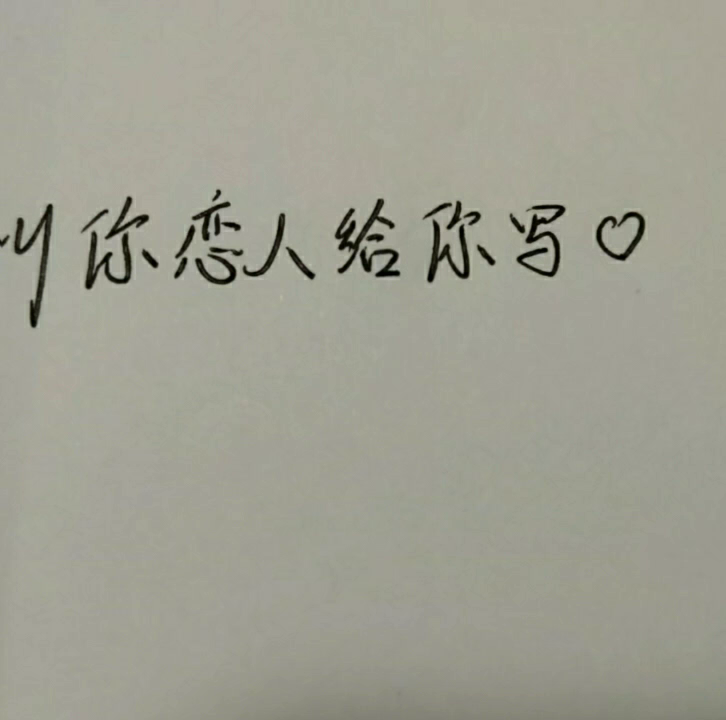 叫你恋人给你写♡